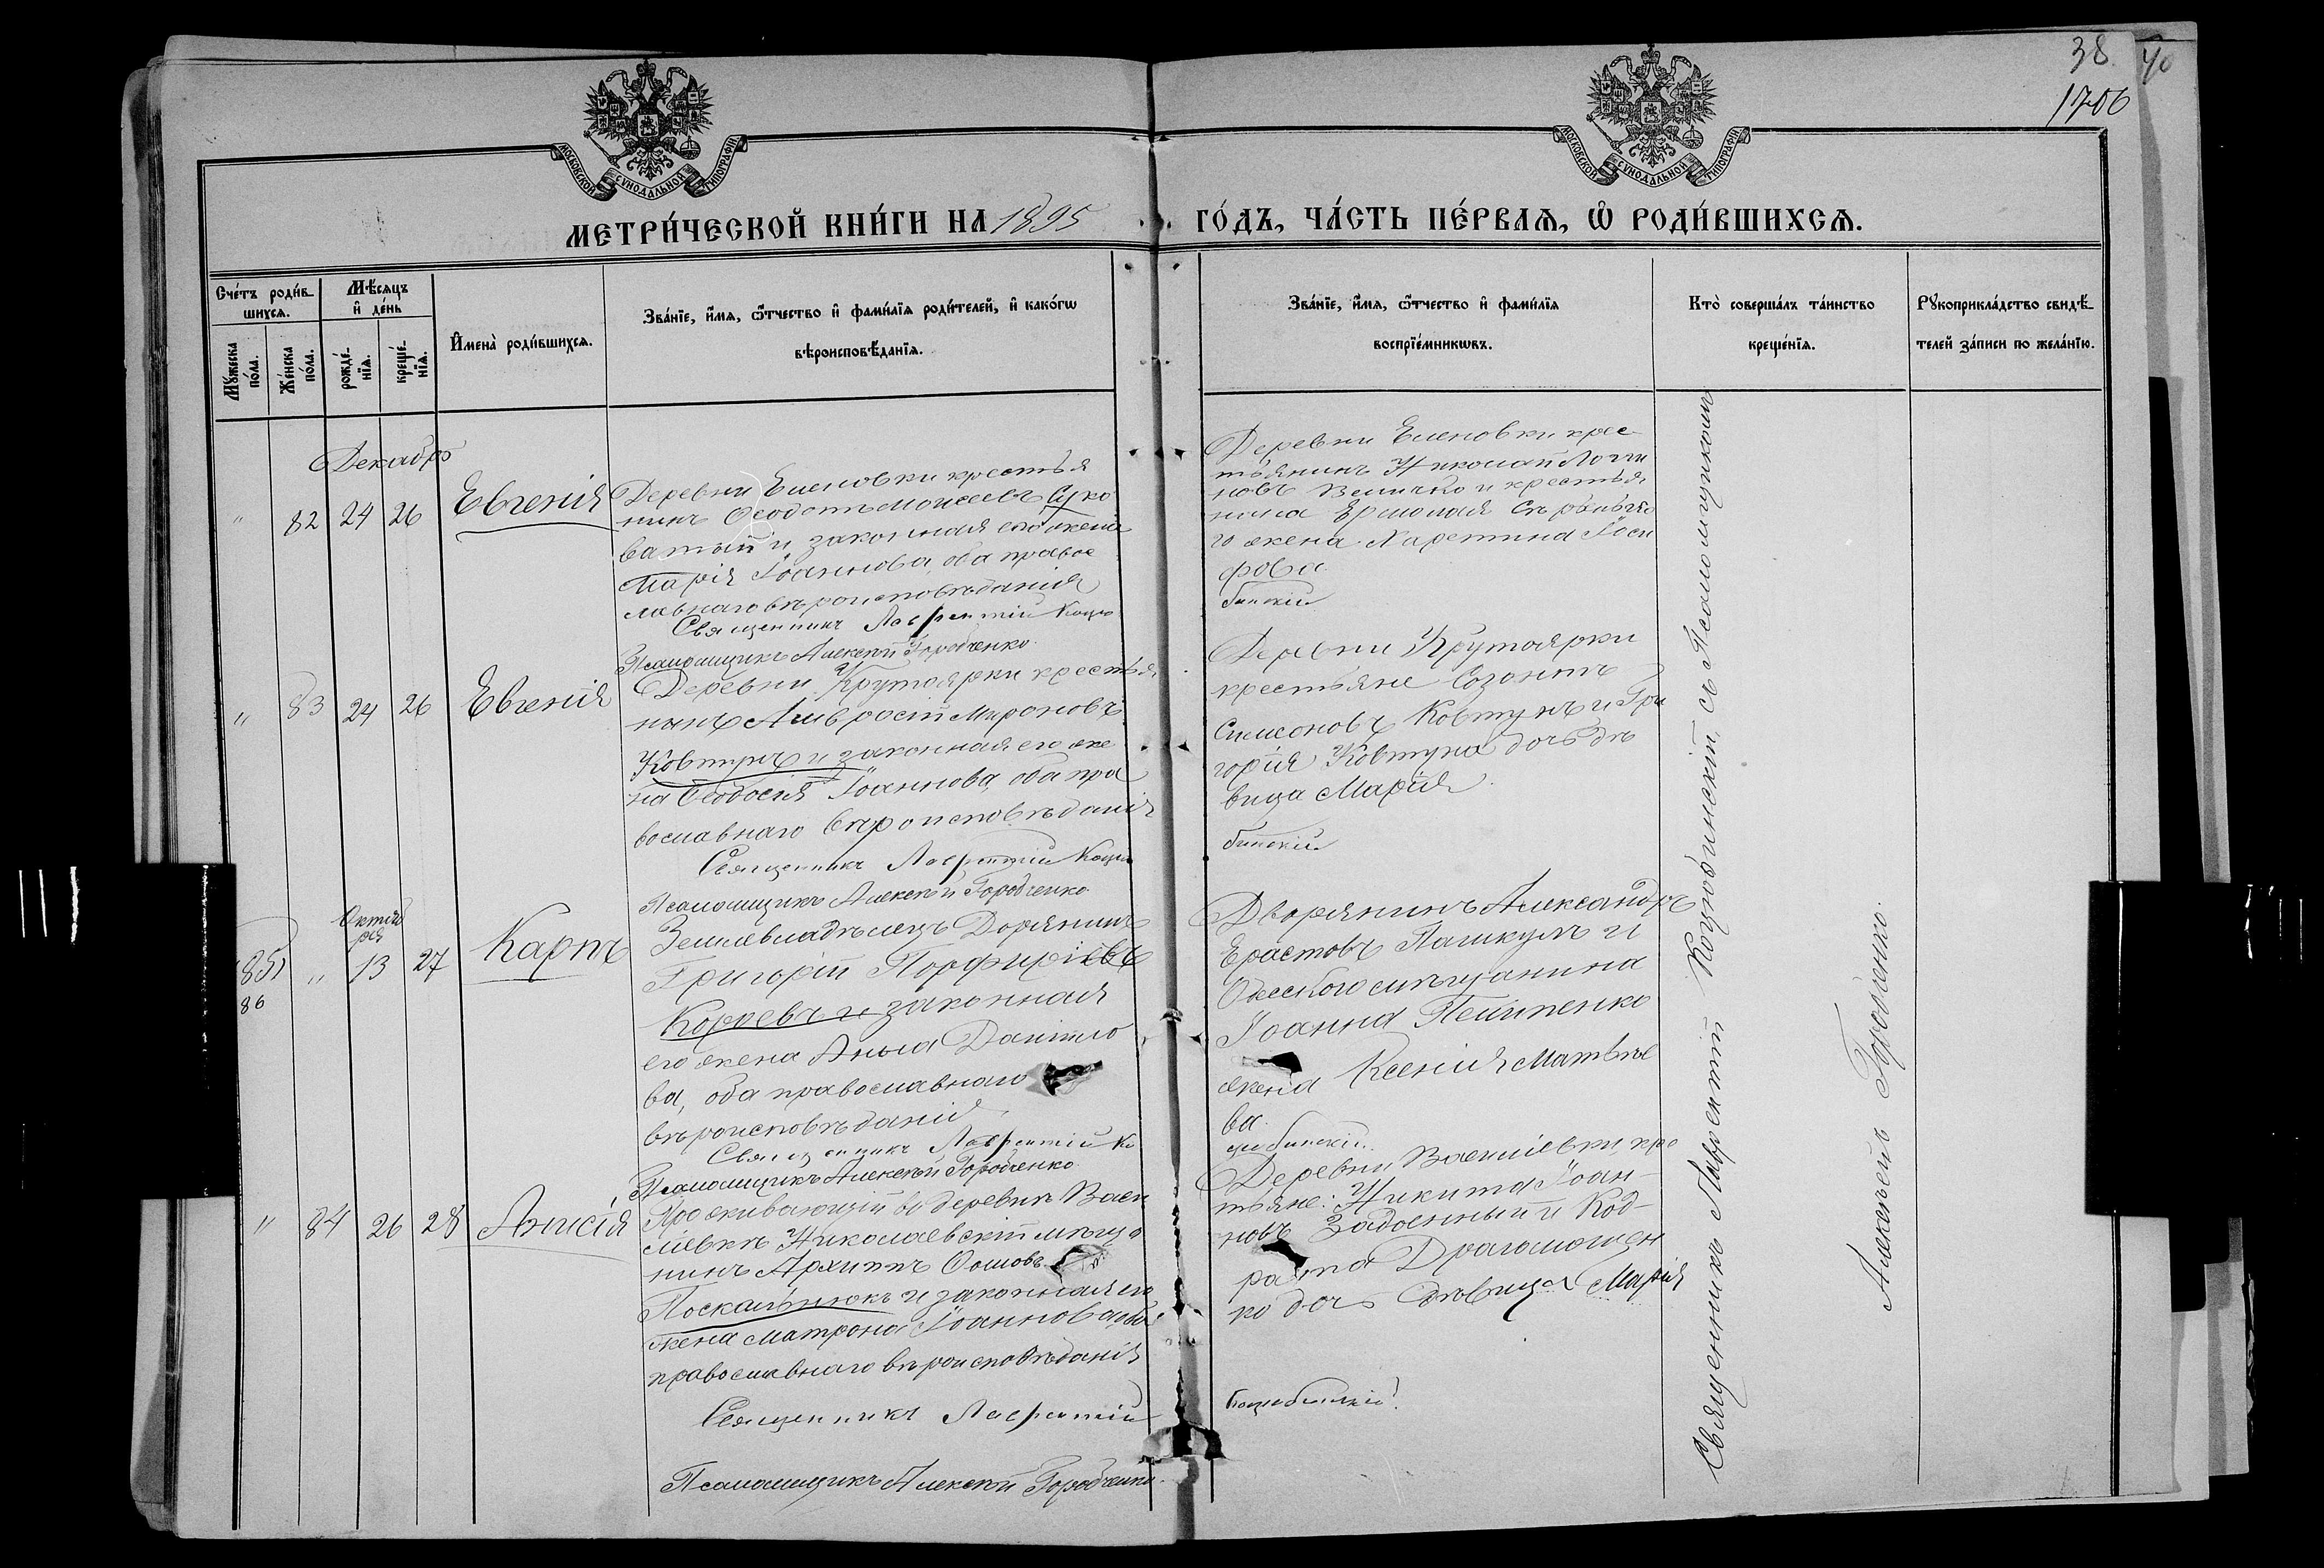 38 40
1706
МОСКОВСКОЙ СУНОДАЛЬНОЙ ТИПОГРАФІИ
МОСКОВСКОЙ СУНОДАЛЬНОЙ ТИПОГРАФІИ
МЕТРИ́ЧЕСКОЙ КНИ́ГИ НА 1895 ГО́ДЪ, ЧА́СТЬ ПЕ́РВАѦ, Ѡ҆ РОДИ́ВШИХСѦ.
Сче́тъ роди́в-
шихсѧ.
Мꙋ́жеска по́ла.
Же́нска по́ла.
Мѣ́сѧцъ
и҆ де́нь
рожде́-
нїѧ.
креще́-
нїѧ.
И҆мена̀ роди́вшихсѧ.
Зва́нїе, и҆́мѧ, ѻ҆́тчество и҆ фами́лїѧ роди́телей, и҆ како́гѡ
вѣроисповѣ́данїѧ.
Зва́нїе, и҆́мѧ, ѻ҆́тчество и҆ фами́лїѧ
воспрїе́мникѡвъ.
Кто̀ соверша́лъ та́инство
креще́нїѧ.
Рꙋкоприкла́дство свидѣ́-
телей за́писи по жела́нїю.
Декабрь
" 82 24 26 Евгенія
Деревни Еленовки крестья
нинъ Ѳеодотъ Моисеевъ Суко
ватый и законная его жена
Марія Іоаннова, оба правос
лавнаго вѣроисповѣданія
Священникъ Лаврентій Коцю
Псаломщикъ Алексѣй Городченко
Деревни Еленовки крес
тьянинъ Николай Логги
новъ Величко и крестья
нина Ермолая
го жена Харитина Іоси
фова
бинскій
" 83 24 26 Евгенія
Деревни Крутоярки крестья
нинъ Амвросій Мироновъ
Ковтунъ и законная его же
на Ѳеодосія Іоаннова, оба пра
вославнаго вѣроисповѣданія
Священникъ Лаврентій Коцю
Псаломщикъ Алексѣй Городченко
Деревни Крутоярки
крестьяне Созонтъ
Симеоновъ Ковтунъ и Гри
горія Ковтуна дочь дѣ
вица Марія
бинскій
Октяб
ря
85 " 13 27 Карпъ
86
Землевладѣлецъ Дорянинъ
Григорій Порфиріевъ
Короевъ и законная
его жена Анна Даніило
ва, оба православнаго
вѣроисповѣданія
Священникъ Лаврентій Ко
Псаломщикъ Алексѣй Городченко
Дворянинъ Александръ
Ерастовъ Пашкулъ и
Одесскаго мѣщанина
Іоанна
жена Ксенія Матвѣе
ва.
цюбинскій
" 84 26 28 Анисія
Проживающій въ деревнѣ Васи
лівкѣ Николаевскій мѣща
нинъ Архиппъ Ѳомовъ
Поскальнюкъ и законная его
жена Матрона Іоаннова, оба
православнаго вѣроисповѣданія
Священникъ Лаврентій
Псаломщикъ Алексѣй Городченко
Деревни Василіевки кре
тьяне: Никита Іоан-
новъ Задоенный и Код-
рата Драгомощен
ко дочь дѣвица Марія
Коцюбинскій
Священникъ Лаврентій Коцюбинскій съ Псаломщикомъ
Алексѣемъ Городченко.